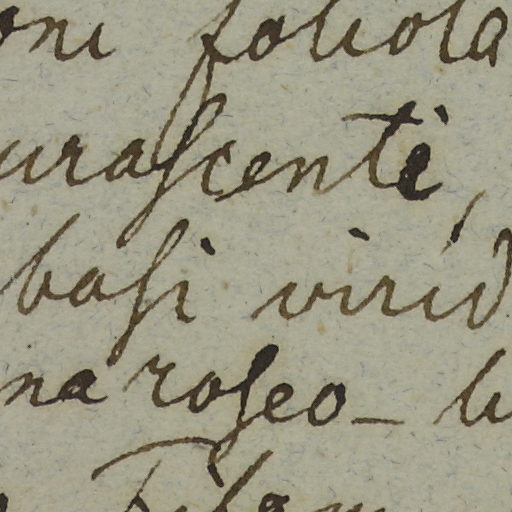 oni foliola
urascenti,
basi virid
na roseo - l
Filam